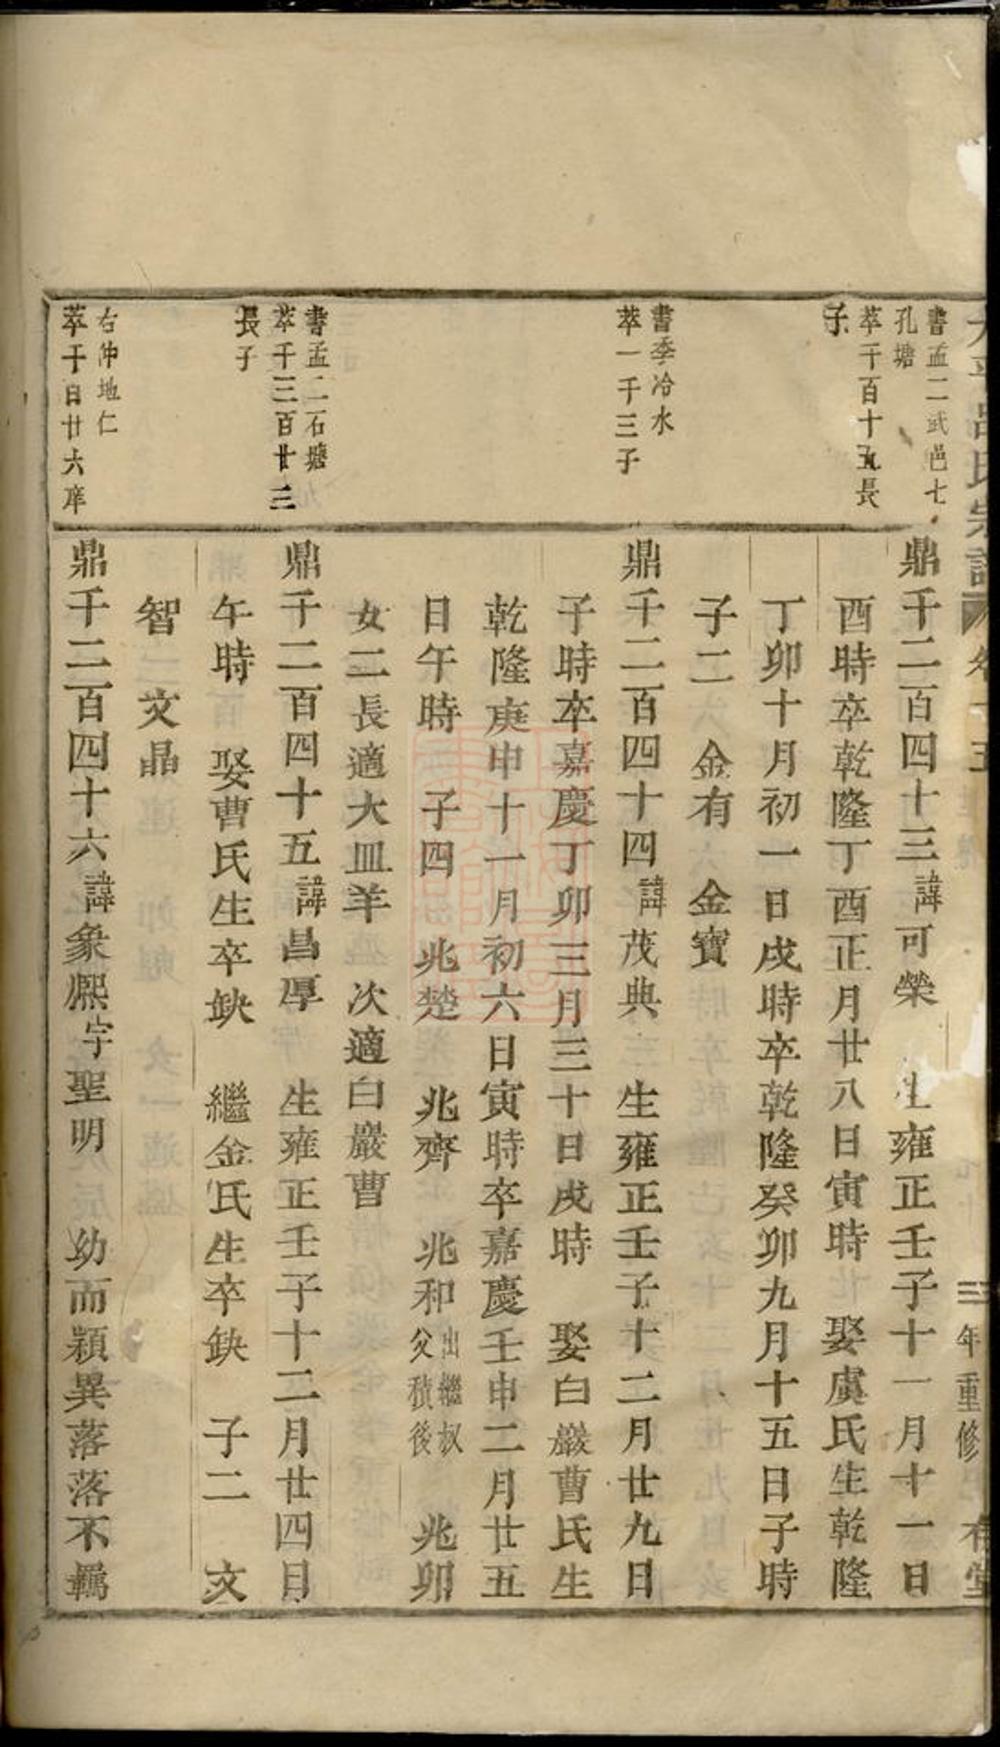 呂氏宗譜 卷十五 三年重修
書孟二武邑七
孔塘
萃千百十五長
子
鼎千二百四十三諱可榮 生雍正壬子十一月十一日
酉時卒乾隆丁酉正月廿八日寅時 娶虞氏生乾隆
丁卯十月初一日戌時卒乾隆癸卯九月十五日子時
子二 金有 金寶
書季冷水
萃一千三子
鼎千二百四十四諱茂典 生雍正壬子十二月廿九日
子時卒嘉慶丁卯三月三十日戌時 娶白巖曹氏生
乾隆庚申十一月初六日寅時卒嘉慶壬申二月廿五
日午時 子四 兆楚 兆齊 兆和出繼叔父積後 兆卯
女二長適大皿羊 次適白巖曹
書孟二石塘
萃千三百廿三
長子
鼎千二百四十五諱昌厚 生雍正壬子十二月廿四日
午時 娶曹氏生卒缺 繼金氏生卒缺 子二 文
智 文晶
右仲地仁
萃千百廿六庠
鼎千二百四十六諱象熙字聖明 幼而穎異落落不羈